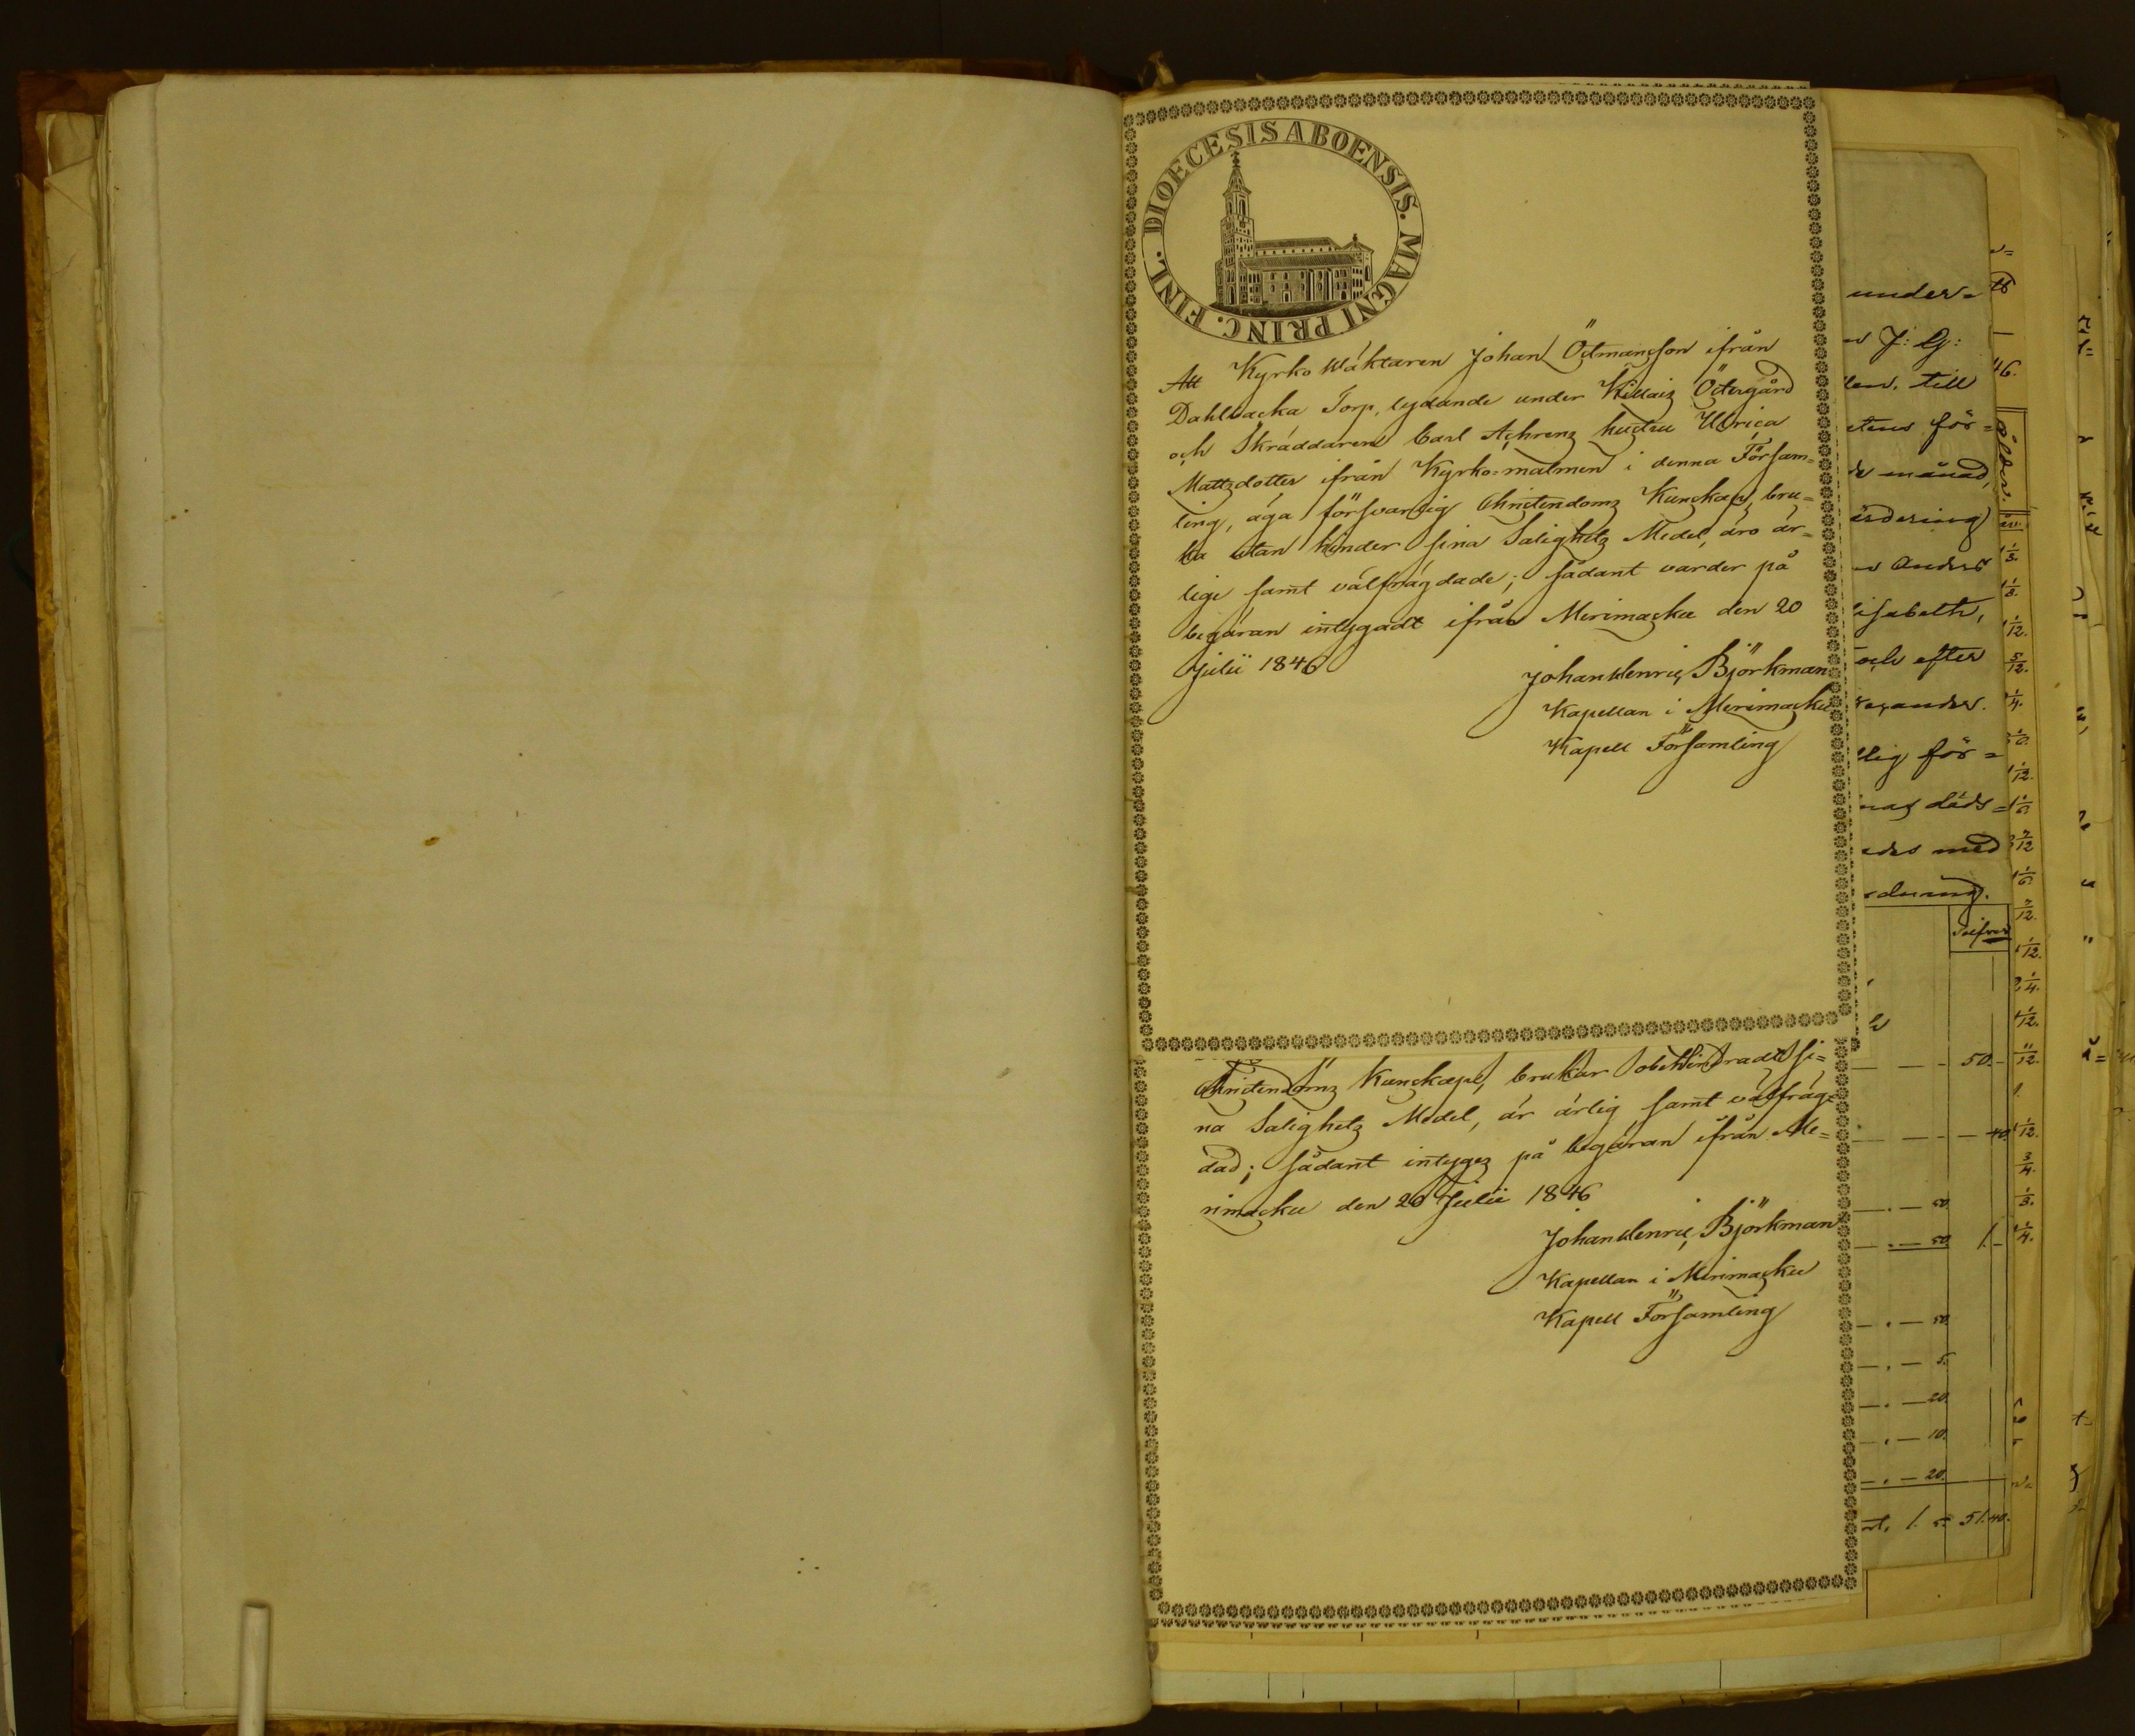 DIOECESIS ABOENSIS. MAGNI PRINC. FINL.
Att Kyrko Wäktaren Johan Östmansson ifrån
Dahlbacka Torp, lydande under Killais Östergård
och Skräddaren Carl Achrens hustru Ulrica
Mattsdotter ifrån Kyrko=malmen i denna Försam=
ling, äga försvarlig Christendoms Kunskap, bru=
ka utan hinder sina Salighets Medel, äro är=
lige samt välfrägdade; sådant varder på
begäran intygadt ifrån Merimasku den 20
Julii 1846
Johan Henric Björkman
Kapellan i Merimasku
Kapell Församling
Christendoms Kunskap, brukar obehindradt si=
na Salighets Medel, är ärlig samt välfräg=
dad; sådant intyges på begäran ifrån Me=
rimasku den 20 Julii 1846
Johan Henric Björkman
Kapellan i Merimasku
Kapell Församling
under=
J: G:
till
för=
månad,
Anders
och efter
för=
med
Silfver
50.
40.
50.
50. 1.
50.
5.
20.
10.
20.
1. 51.40.
46.
Ålder.